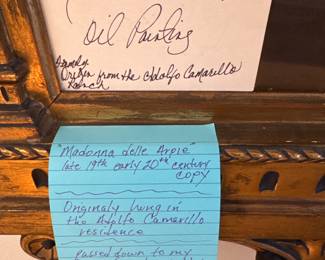 Oil Painting
Family
Origin from the Adolfo Camarillo
Ranch
"Madonna delle Arpie"
late 19th early 20th century
copy
Originaly hung in
the Adolfo Camarillo
residence
passed down to my